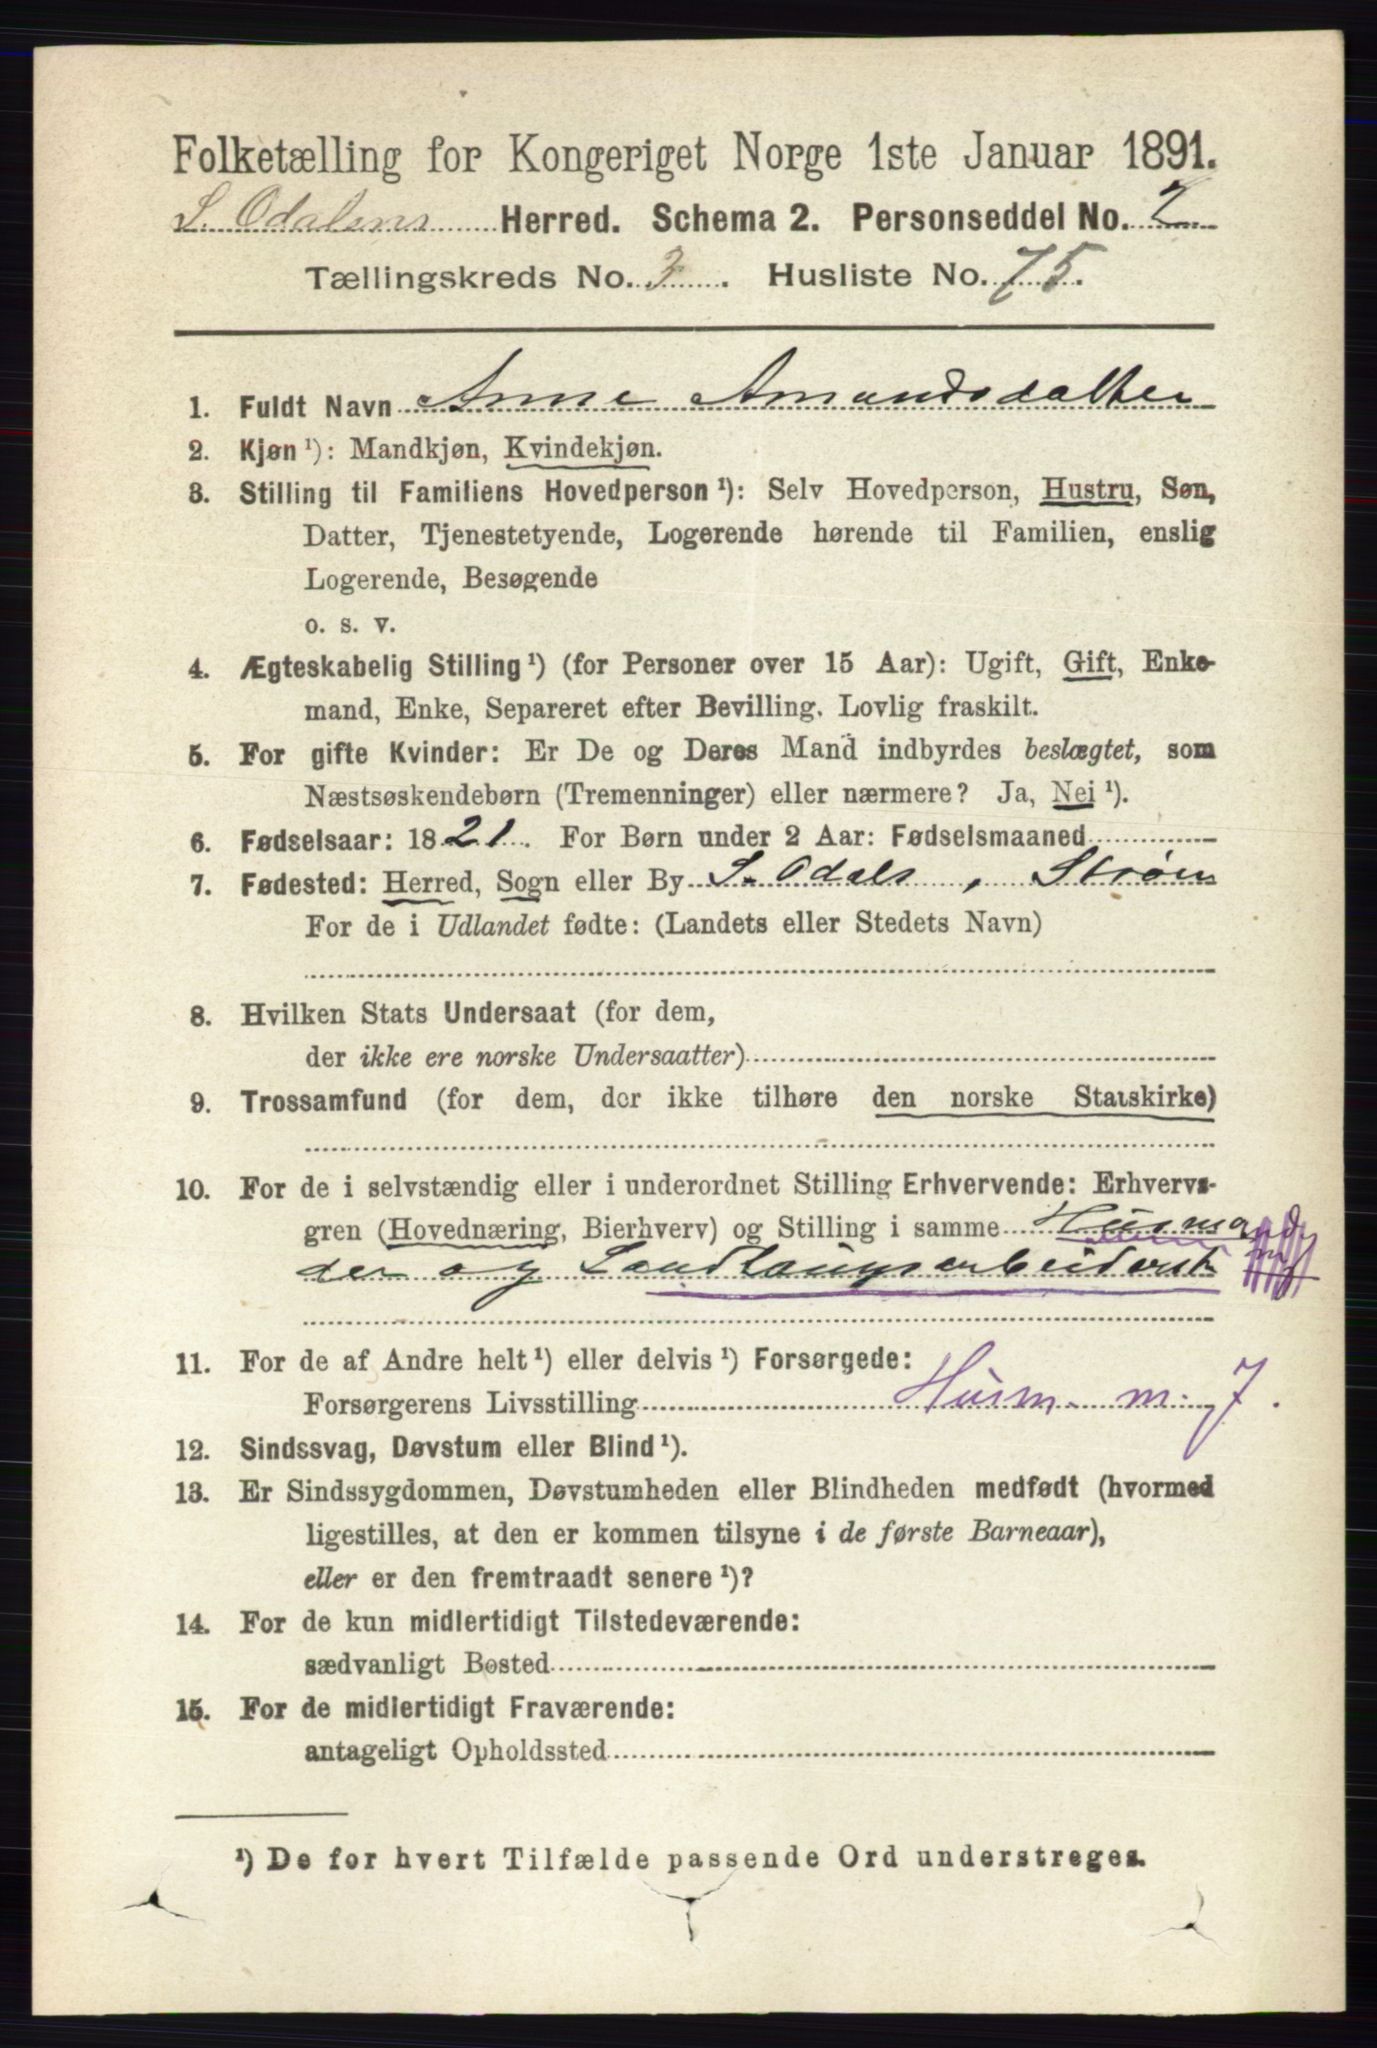 Folketælling for Kongeriget Norge 1ste Januar 1891.
S. Odalens Herred. Schema 2. Personseddel No. 2
Tællingskreds No. 3. Husliste No. 75.
1. Fuldt Navn Anne Amundsdatter
2. Kjøn ¹): Mandkjøn, Kvindekjøn.
3. Stilling til Familiens Hovedperson ¹): Selv Hovedperson, Hustru, Søn,
Datter, Tjenestetyende, Logerende hørende til Familien, enslig
Logerende, Besøgende
o. s. v.
4. Ægteskabelig Stilling ¹) (for Personer over 15 Aar): Ugift, Gift, Enke-
mand, Enke, Separeret efter Bevilling. Lovlig fraskilt.
5. For gifte Kvinder: Er De og Deres Mand indbyrdes beslægtet, som
Næstsøskendebørn (Tremenninger) eller nærmere? Ja, Nei ¹).
6. Fødselsaar: 1821. For Børn under 2 Aar: Fødselsmaaned
7. Fødested: Herred, Sogn eller By S. Odals, Strøm
For de i Udlandet fødte: (Landets eller Stedets Navn)
8. Hvilken Stats Undersaat (for dem,
der ikke ere norske Undersaatter)
9. Trossamfund (for dem, der ikke tilhøre den norske Statskirke)
10. For de i selvstændig eller i underordnet Stilling Erhvervende: Erhvervs-
gren (Hovednæring, Bierhverv) og Stilling i samme Husmand
der og Landhaugsarbeiderske
11. For de af Andre helt ¹) eller delvis ¹) Forsørgede:
Forsørgerens Livsstilling Husm. m. J.
12. Sindssvag, Døvstum eller Blind ¹).
13. Er Sindssygdommen, Døvstumheden eller Blindheden medfødt (hvormed
ligestilles, at den er kommen tilsyne i de første Barneaar),
eller er den fremtraadt senere ¹)?
14. For de kun midlertidigt Tilstedeværende:
sædvanligt Bosted
15. For de midlertidigt Fraværende:
antageligt Opholdssted
¹) De for hvert Tilfælde passende Ord understreges.